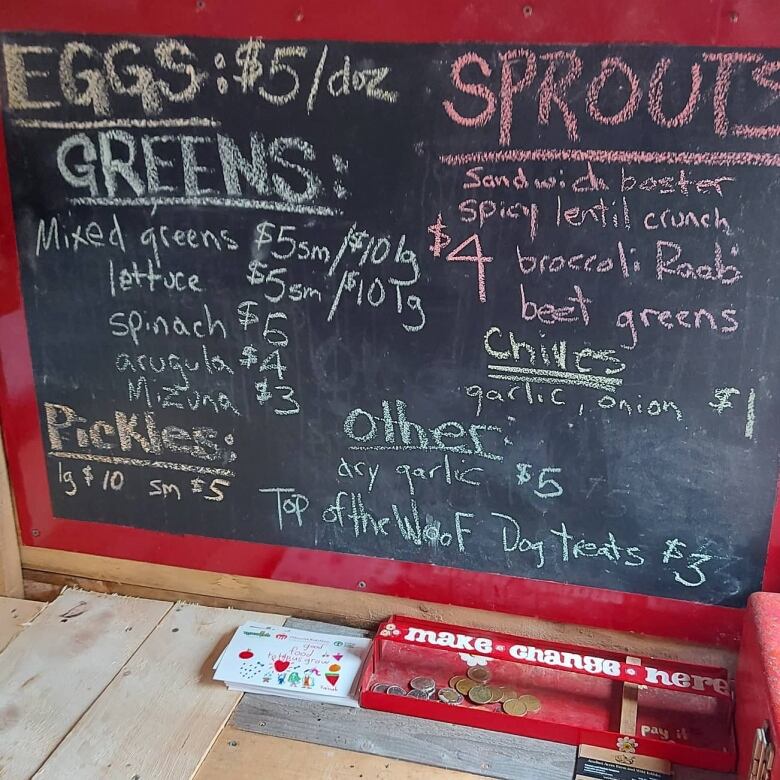 EGGS: $5/doz
GREENS:
Mixed greens $5sm/$10lg
lettuce $5sm/$10lg
spinach $5
arugula $4
Mizuna $3
Pickles:
lg $10 sm $5
SPROUTS
Sandwich boster
spicy lentil crunch
$4 broccoli Raab
beet greens
Chives
garlic, onion $1
other:
dry garlic $5
Top of the Woof Dog treats $3
good
food
grow
make · change · here
pay it